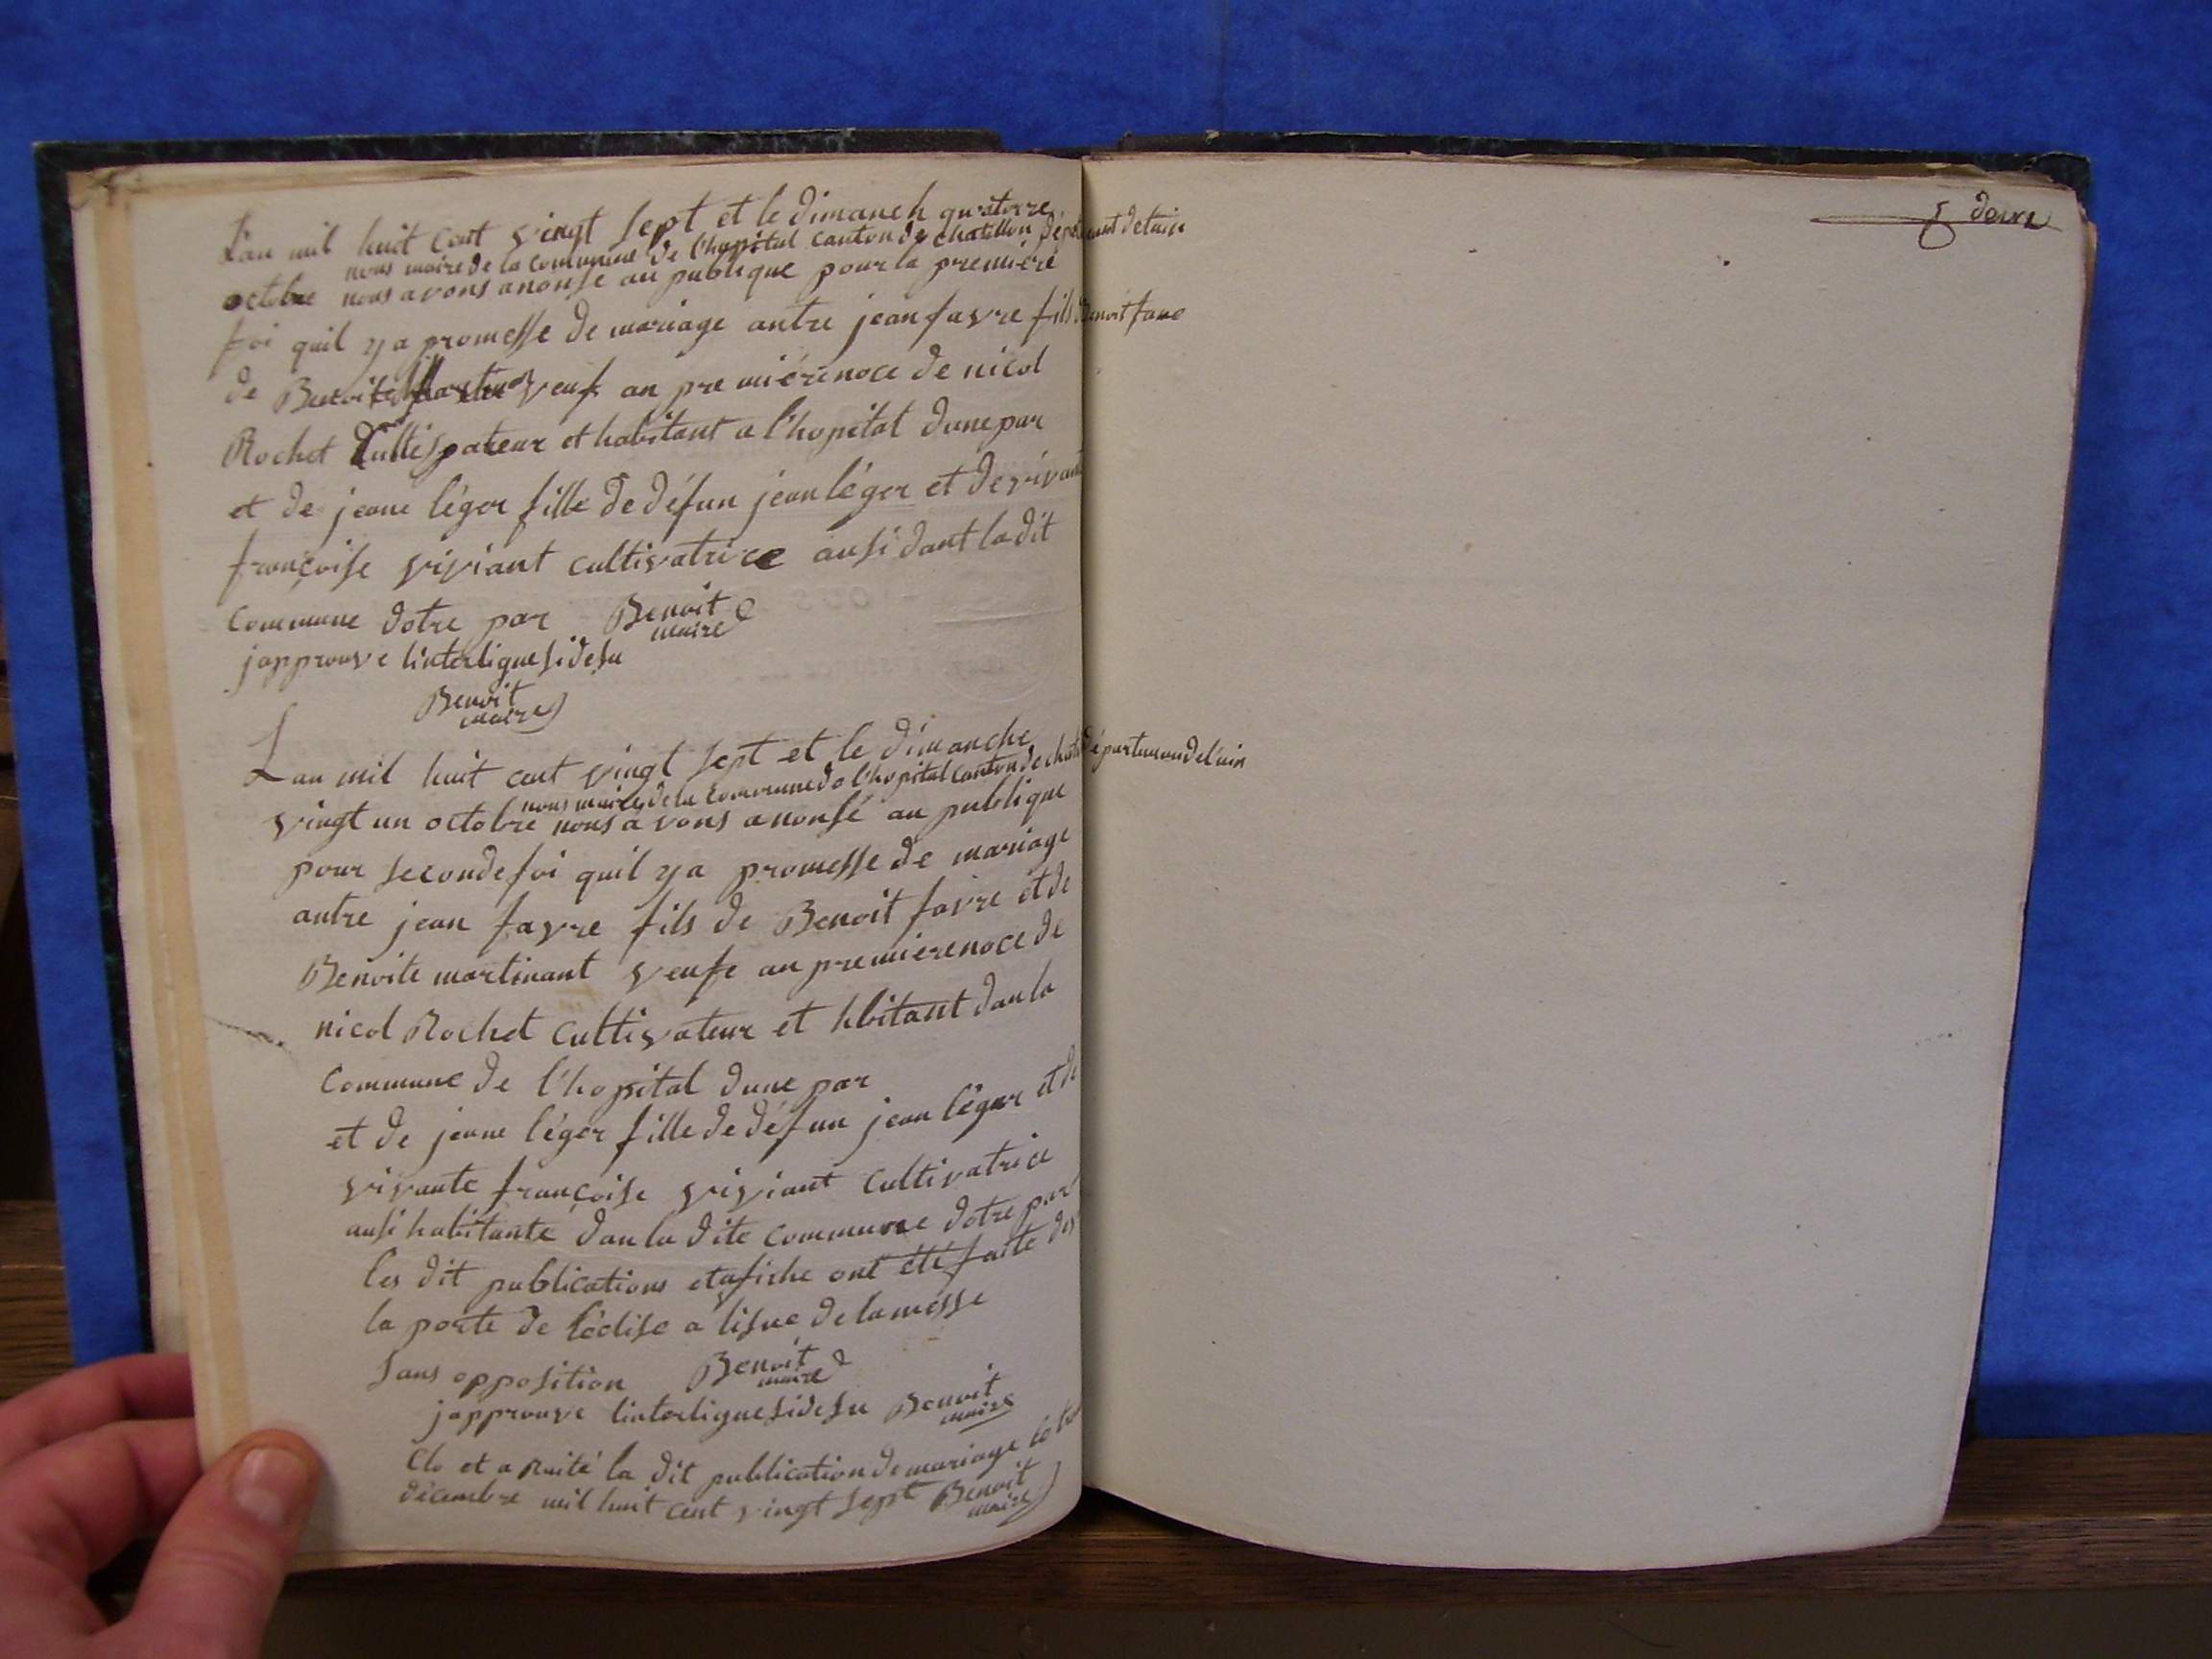 L'an mil huit cent vingt sept et le dimanch quatorze
nous maire de la commune de l'hopital canton de chatillon département de l'ain
octobre nous avons anonse au publique pour la premiére
foi quil y a promesse de mariage antre jean favre fils Benoit favre
de Benoite veuf an premiérenoce de nicol
Rochet Cultispateur et habitant a l'hopital dune par
et de jeane léger fille de défun jean léger et de vivant
françoise viviant cultivatrice ausi dant la dit
commune dotre par Benoit
maire
japprouve linterligne si desu
Benoit
maire
Lan mil huit cent vingt sept et le dimanche
nous maire de la commune de l'hopital canton de chati départemen de l'ain
vingt un octobre nous avons anonsé au publique
pour seconde foi quil y a promesse de mariage
antre jean favre fils de Benoit favre et de
Benoite martinant veufe an premierenoce de
nicol Rochet cultivateur et hbitant dan la
commune de l'hopital dune par
et de jeane léger fille de défun jean léger et de
vivante françoise viviant cultivatrice
ausi habitante dan la dite commune dotre par
les dit publications et afiche ont été faite
la porte de léclise a lisue de la messe
sans opposition Benoit
maire
japprouve linterligne si desu Benoit
maire
Clo et a la dit publication de mariage
décembre mil huit cent vingt sept Benoit
maire
deux